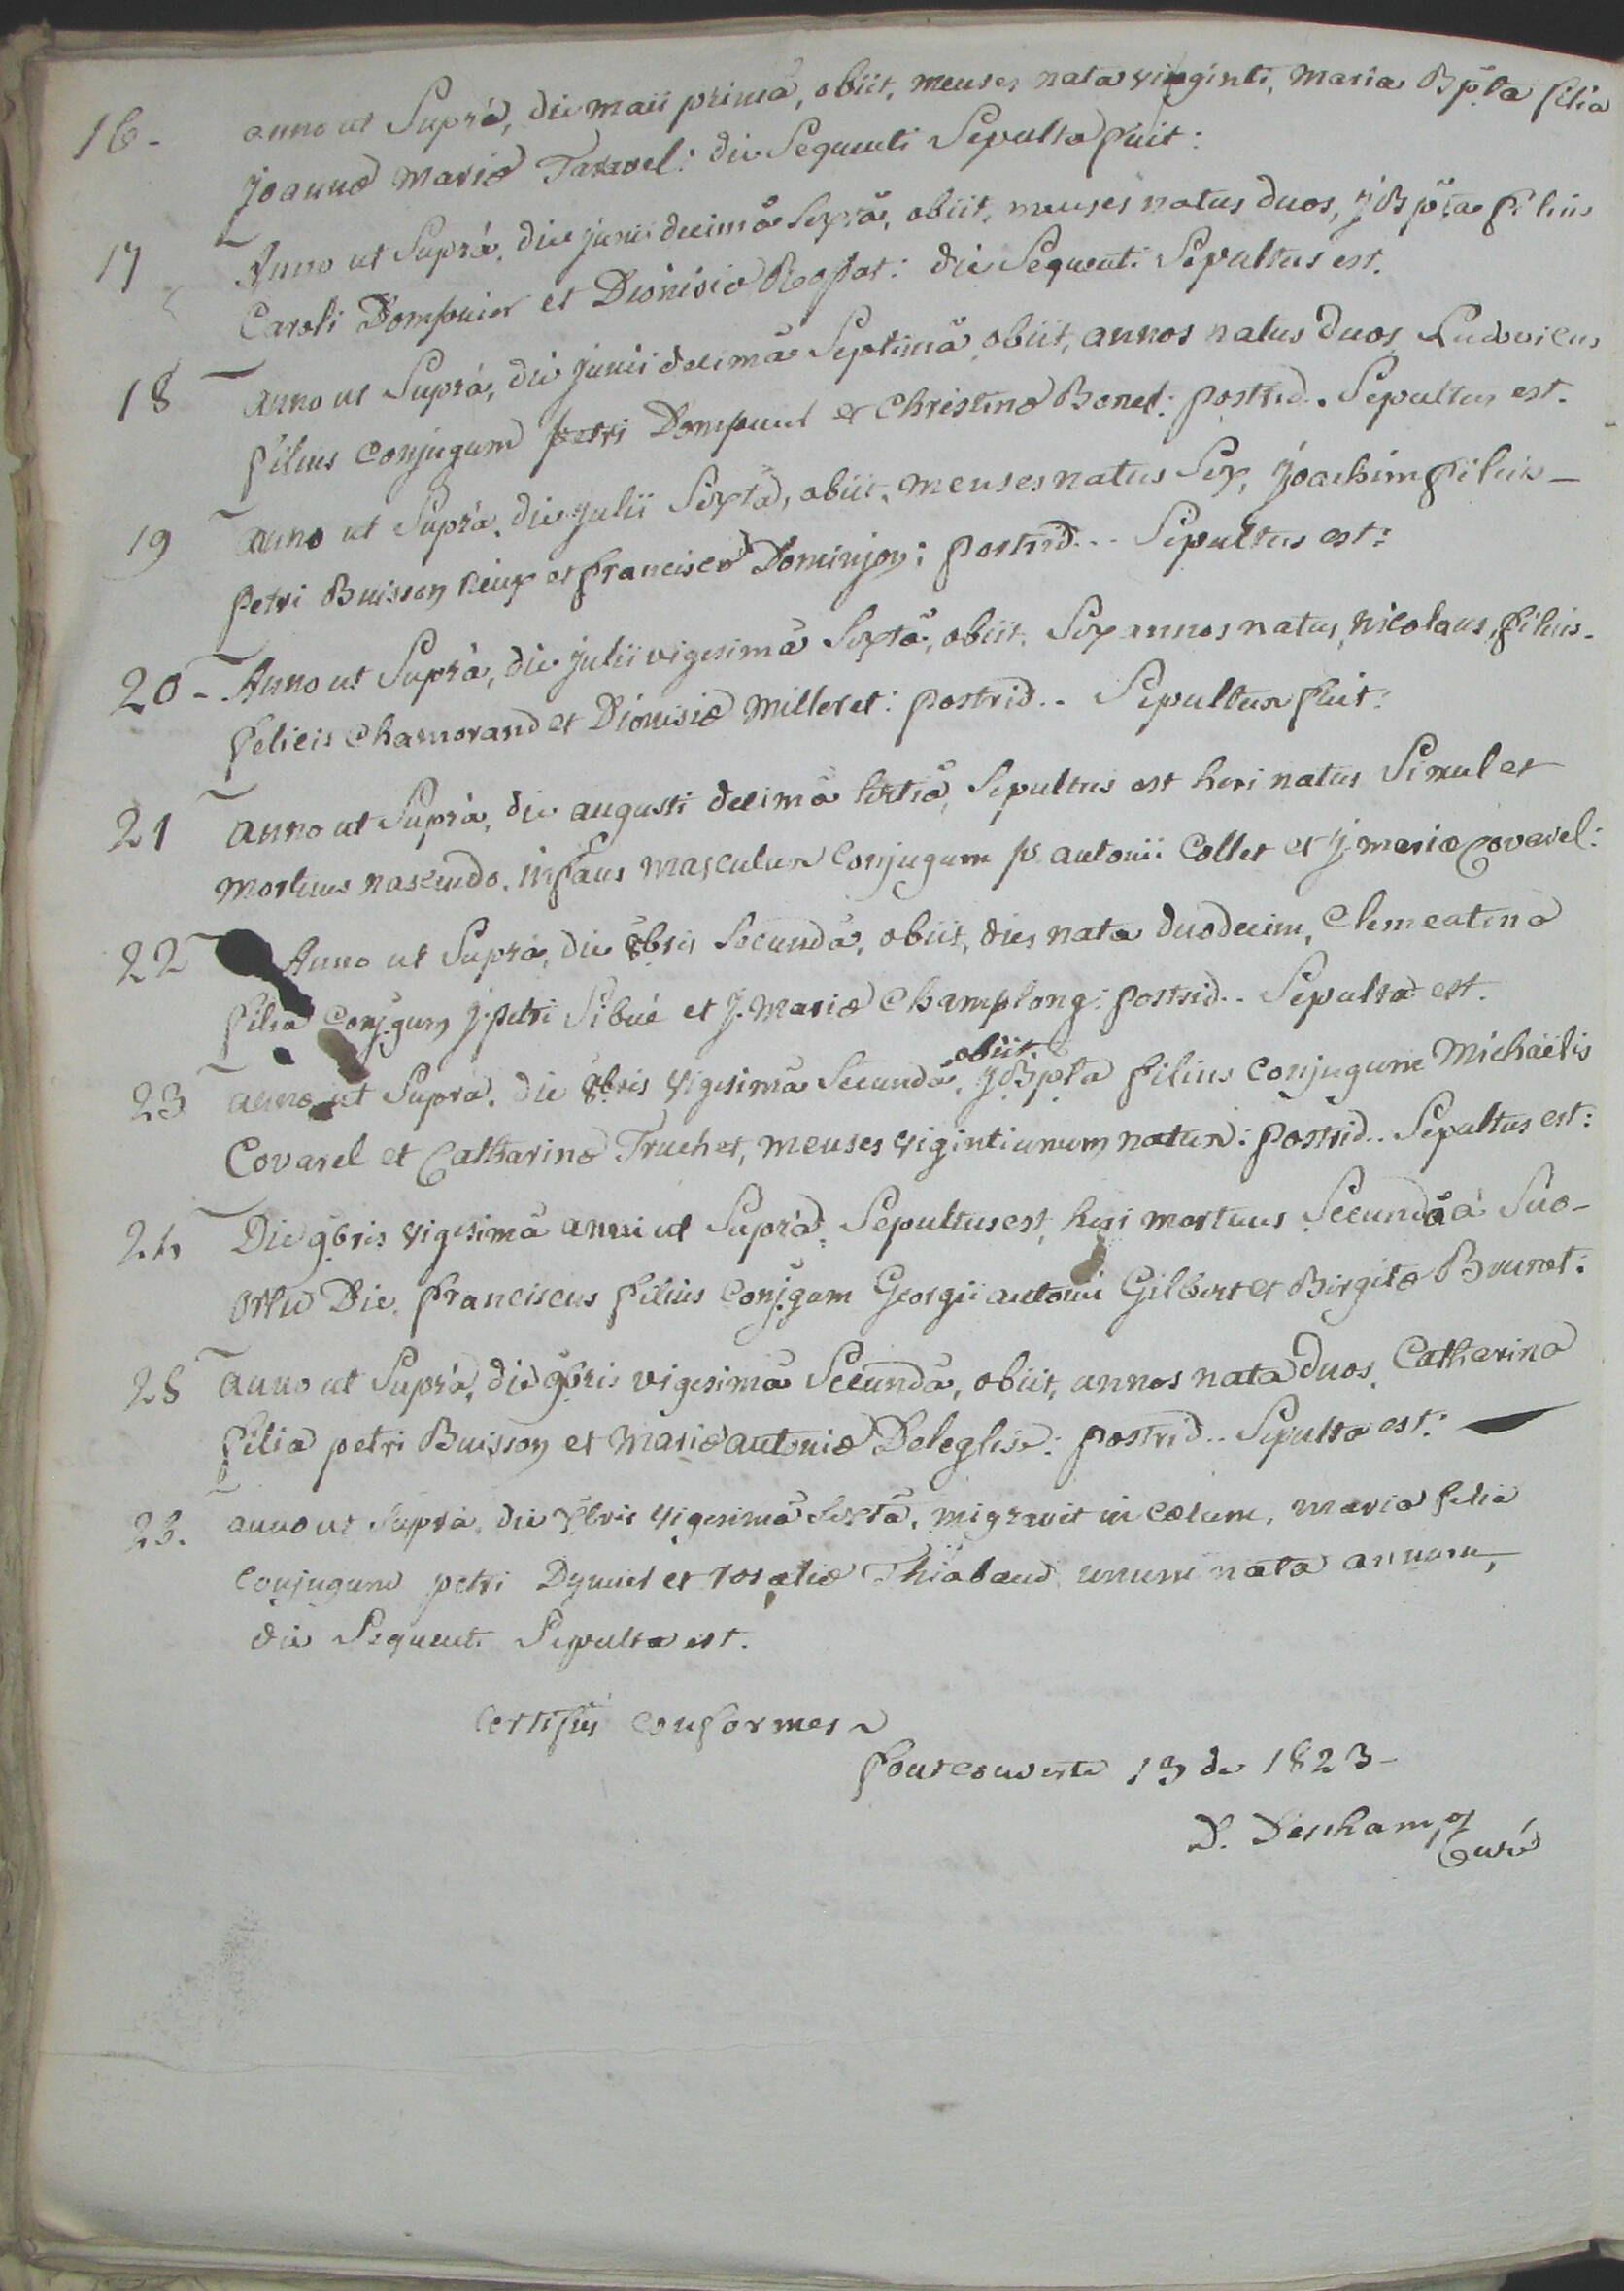 16 - anno ut Suprà, die maii primâ, obiit, menses nata viginti, maria Bpta filia
joannæ mariæ Taravel: die Sequenti Sepulta fuit:
17 Anno ut Suprà, die junii decimâ Sextâ, obiit, menses natus duos, j Bpta filius
Caroli Dompnier et Dionisiæ die Sequenti Sepultus est.
18 anno ut Suprà, die junii decimâ Septimâ obiit, annos natus duos Ludovicus
filius Conjugum petri Dompnier et Christinæ Bonet: postrid.. Sepultus est.
19 anno ut Suprà, die julii Sextâ, obiit, menses natus Sex, joachim filius -
petri Buisson et franciscæ Dominjon; postrid... Sepultus est:
20 - Anno ut Suprà, die julii vigesimâ Sextâ, obiit, Sex annos natus, nicolaus, filius -
felicis Chamorand et Dionisiæ Milleret: postrid.. Sepultus fuit:
21 anno ut Suprà, die augusti decimâ tertiâ, Sepultus est heri natus Simul et
mortuus nascendo, infans masculus Conjugum ps. antonii Collet et j. mariæ Covarel:
22 Anno ut Suprà, die 8bris Secundâ, obiit, dies nata duodecim, Clementina
filia Conj.gum j. petri Sibué et J. Mariæ Champlong: postrid.. Sepulta est.
23 anno ut Suprà, die 8bris vigesimâ Secundâ, obiit, j Bpta filius Conjugum Michaëlis
Covarel et Catharinæ Truchet, menses vigintiunum natus: postrid.. Sepultus est:
24 Die 9bris vigesimâ anni ut Suprà, Sepultus est, heri mortuus Secundâ à Suo -
ortu Die, franciscus filius Conj.gum Georgii antonii Gilbert et Birgitæ Brunet:
25 anno ut Suprà, die 9bris vigesimâ Secundâ, obiit, annos nata duos, Catharina
filia petri Buisson et Mariæ antoniæ Deleglise: postrid.. Sepulta est:
26. anno ut Suprà, die Xbris vigesimâ Sextâ, migravit in Cælum, maria filia
Conjugum petri et rosaliæ Thiabaud unum nata annum,
die Sequenti Sepulta est.
Certifiés conformes
fontcouverte 13 de 1823 -
Curé